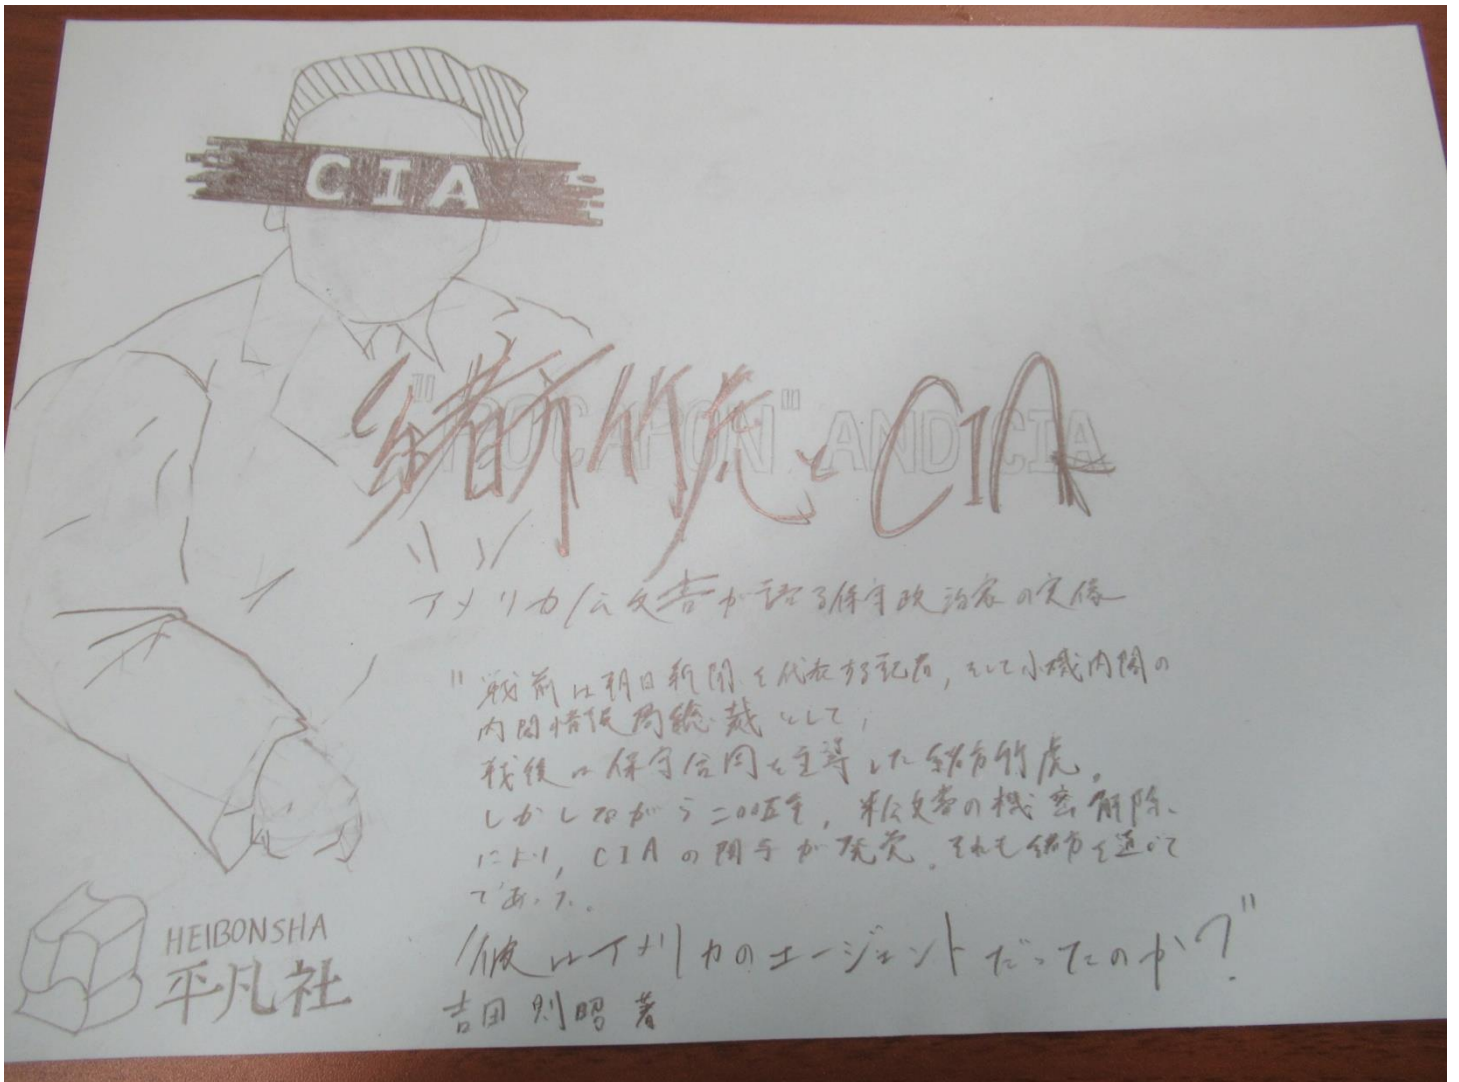 CIA
緒方竹虎とCIA
"POCAPON" AND CIA
アメリカ公文書が語る保守政治家の実像
"戦前は朝日新聞を代表する記者，そして小磯内閣の
内閣情報局総裁として，
戦後は保守合同を主導した緒方竹虎。
しかしながら二〇〇五年，米公文書の機密解除
により，CIAの関与が発覚，それも緒方を通じて
であった。
彼はアメリカのエージェントだったのか？"
吉田則昭 著
HEIBONSHA
平凡社